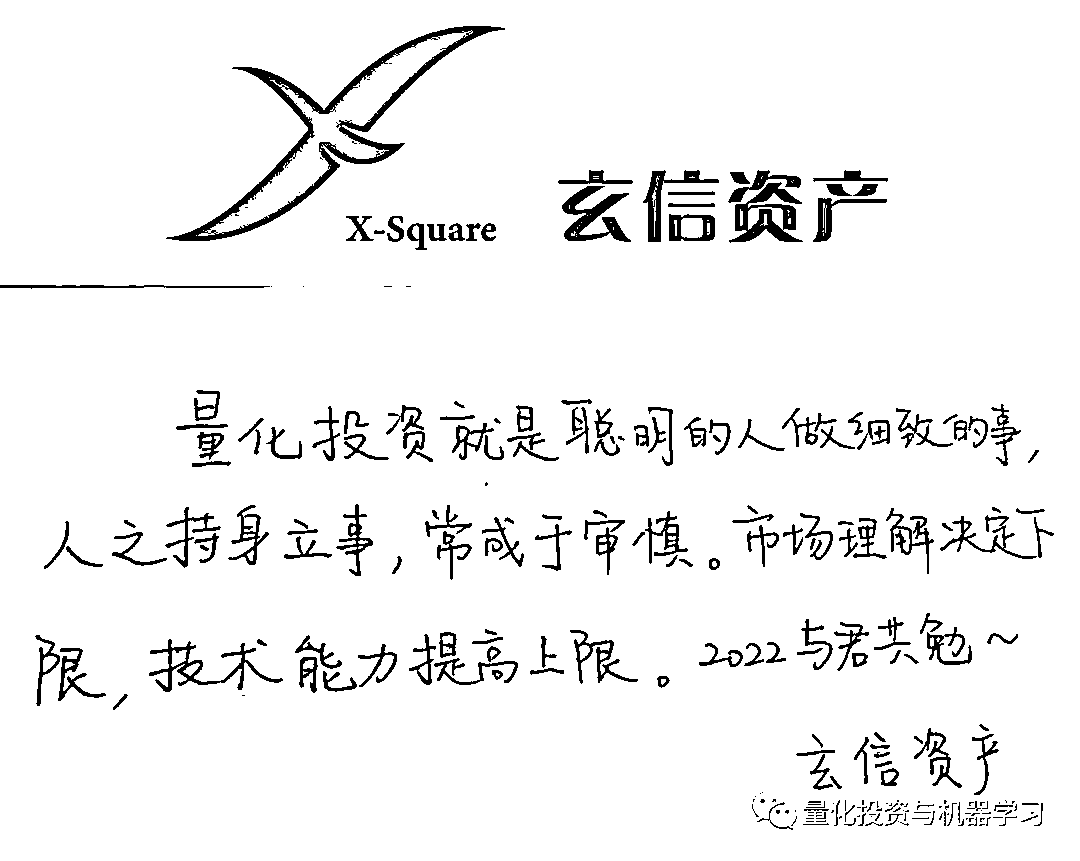 X-Square 玄信资产
量化投资就是聪明的人做细致的事,
人之持身立事,常成于审慎。市场理解决定下
限,技术能力提高上限。2022与君共勉~
玄信资产
量化投资与机器学习